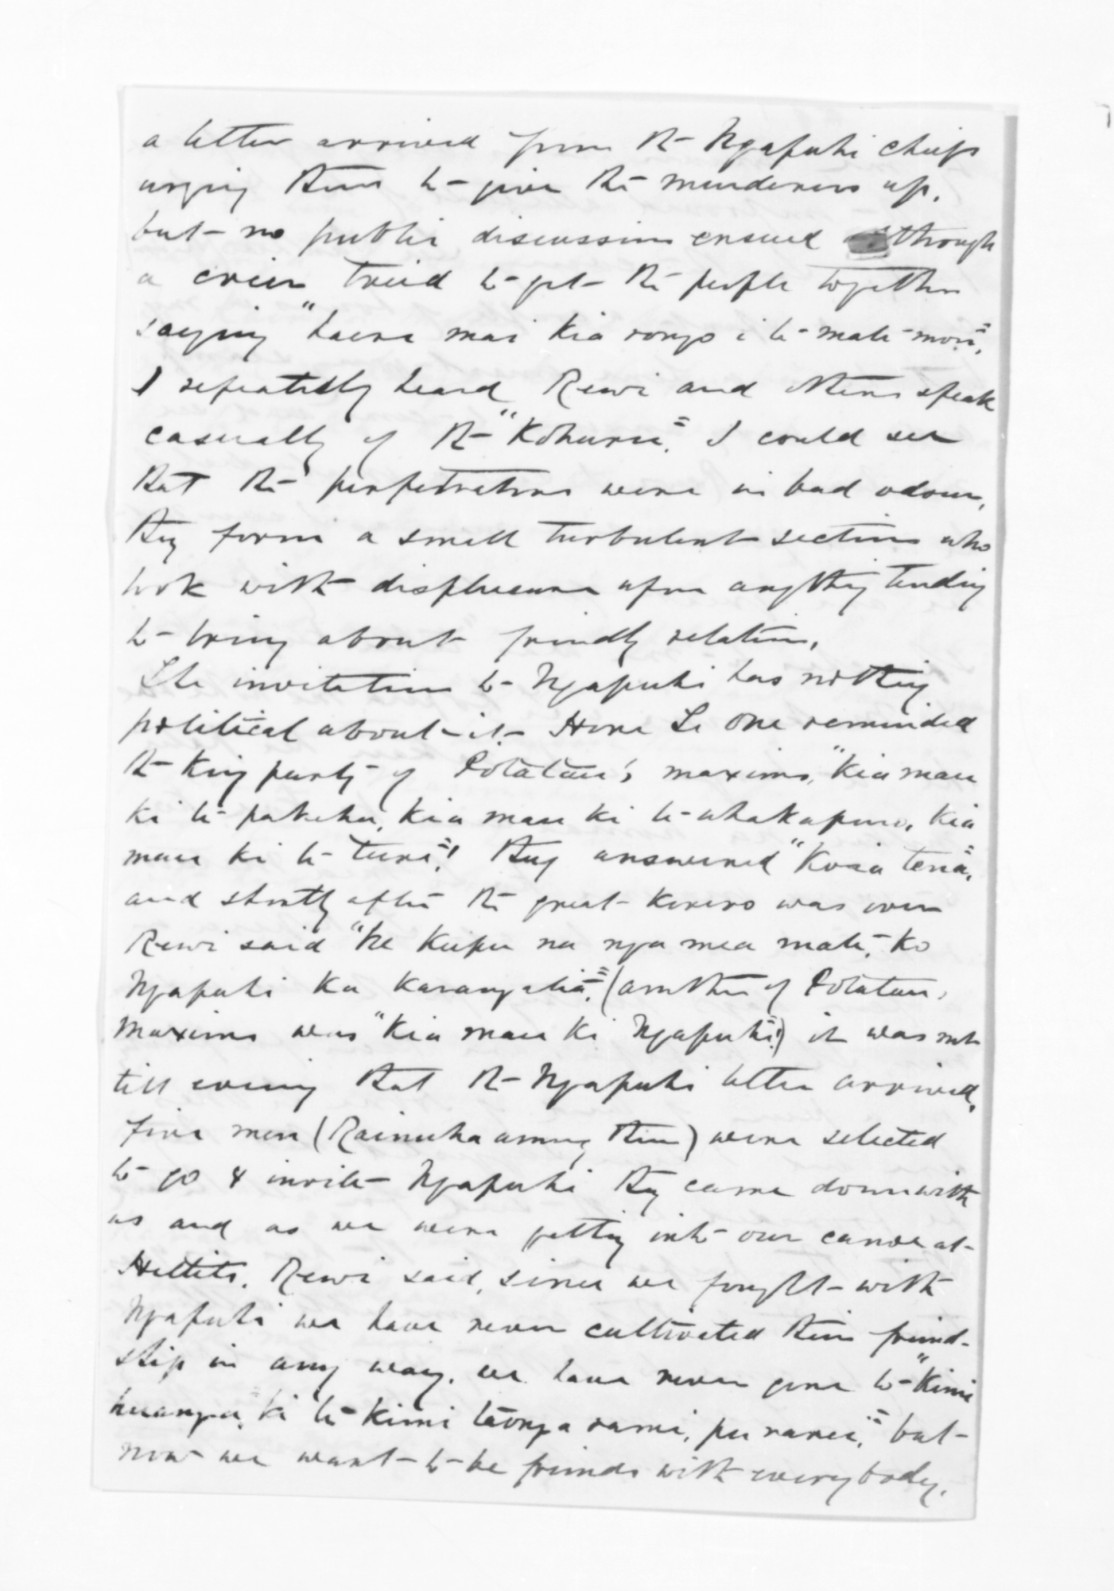 a letter arrived from the Ngapuhi chiefs
urging them to give the murderers up,
but no public discussion ensued although
a crier tried to get the people together
saying "haere mai kia rongo i te mate mou".
I repeatedly heard Rewi and others speak
casually of the "Kohuru". I could see
that the perpetrators were in bad odour,
they form a small turbulent section who
look with displeasure upon anything tending
to bring about friendly relations.
The invitation to Ngapuhi has nothing
political about it Hone Te One reminded
the King party of Potatau's maxims, "Kia mau
ki te pakeha, kia mau ki te whakapono, kia
mau ki te ture"! They answered "Koia tena",
and shortly after the great korero was over
Rewi said "he kupu na nga mea mate, ko
Ngapuhi ka karangatia", (another of Potatau
maxims was "Kia mau ki Ngapuhi"!) it was not
till evening that the Ngapuhi letter arrived,
five men (Rainuha among them) were selected
to go & invite Ngapuhi they came down with
us and as we were getting into our canoe at
Hettits, Rewi said, since we fought with
Ngapuhi we have never cultivated their friend-
ship in any way, we have never gone to "Kimi
huanga," ki te kimi taonga rami, pu ranei", but
now we want to be friends with everybody.